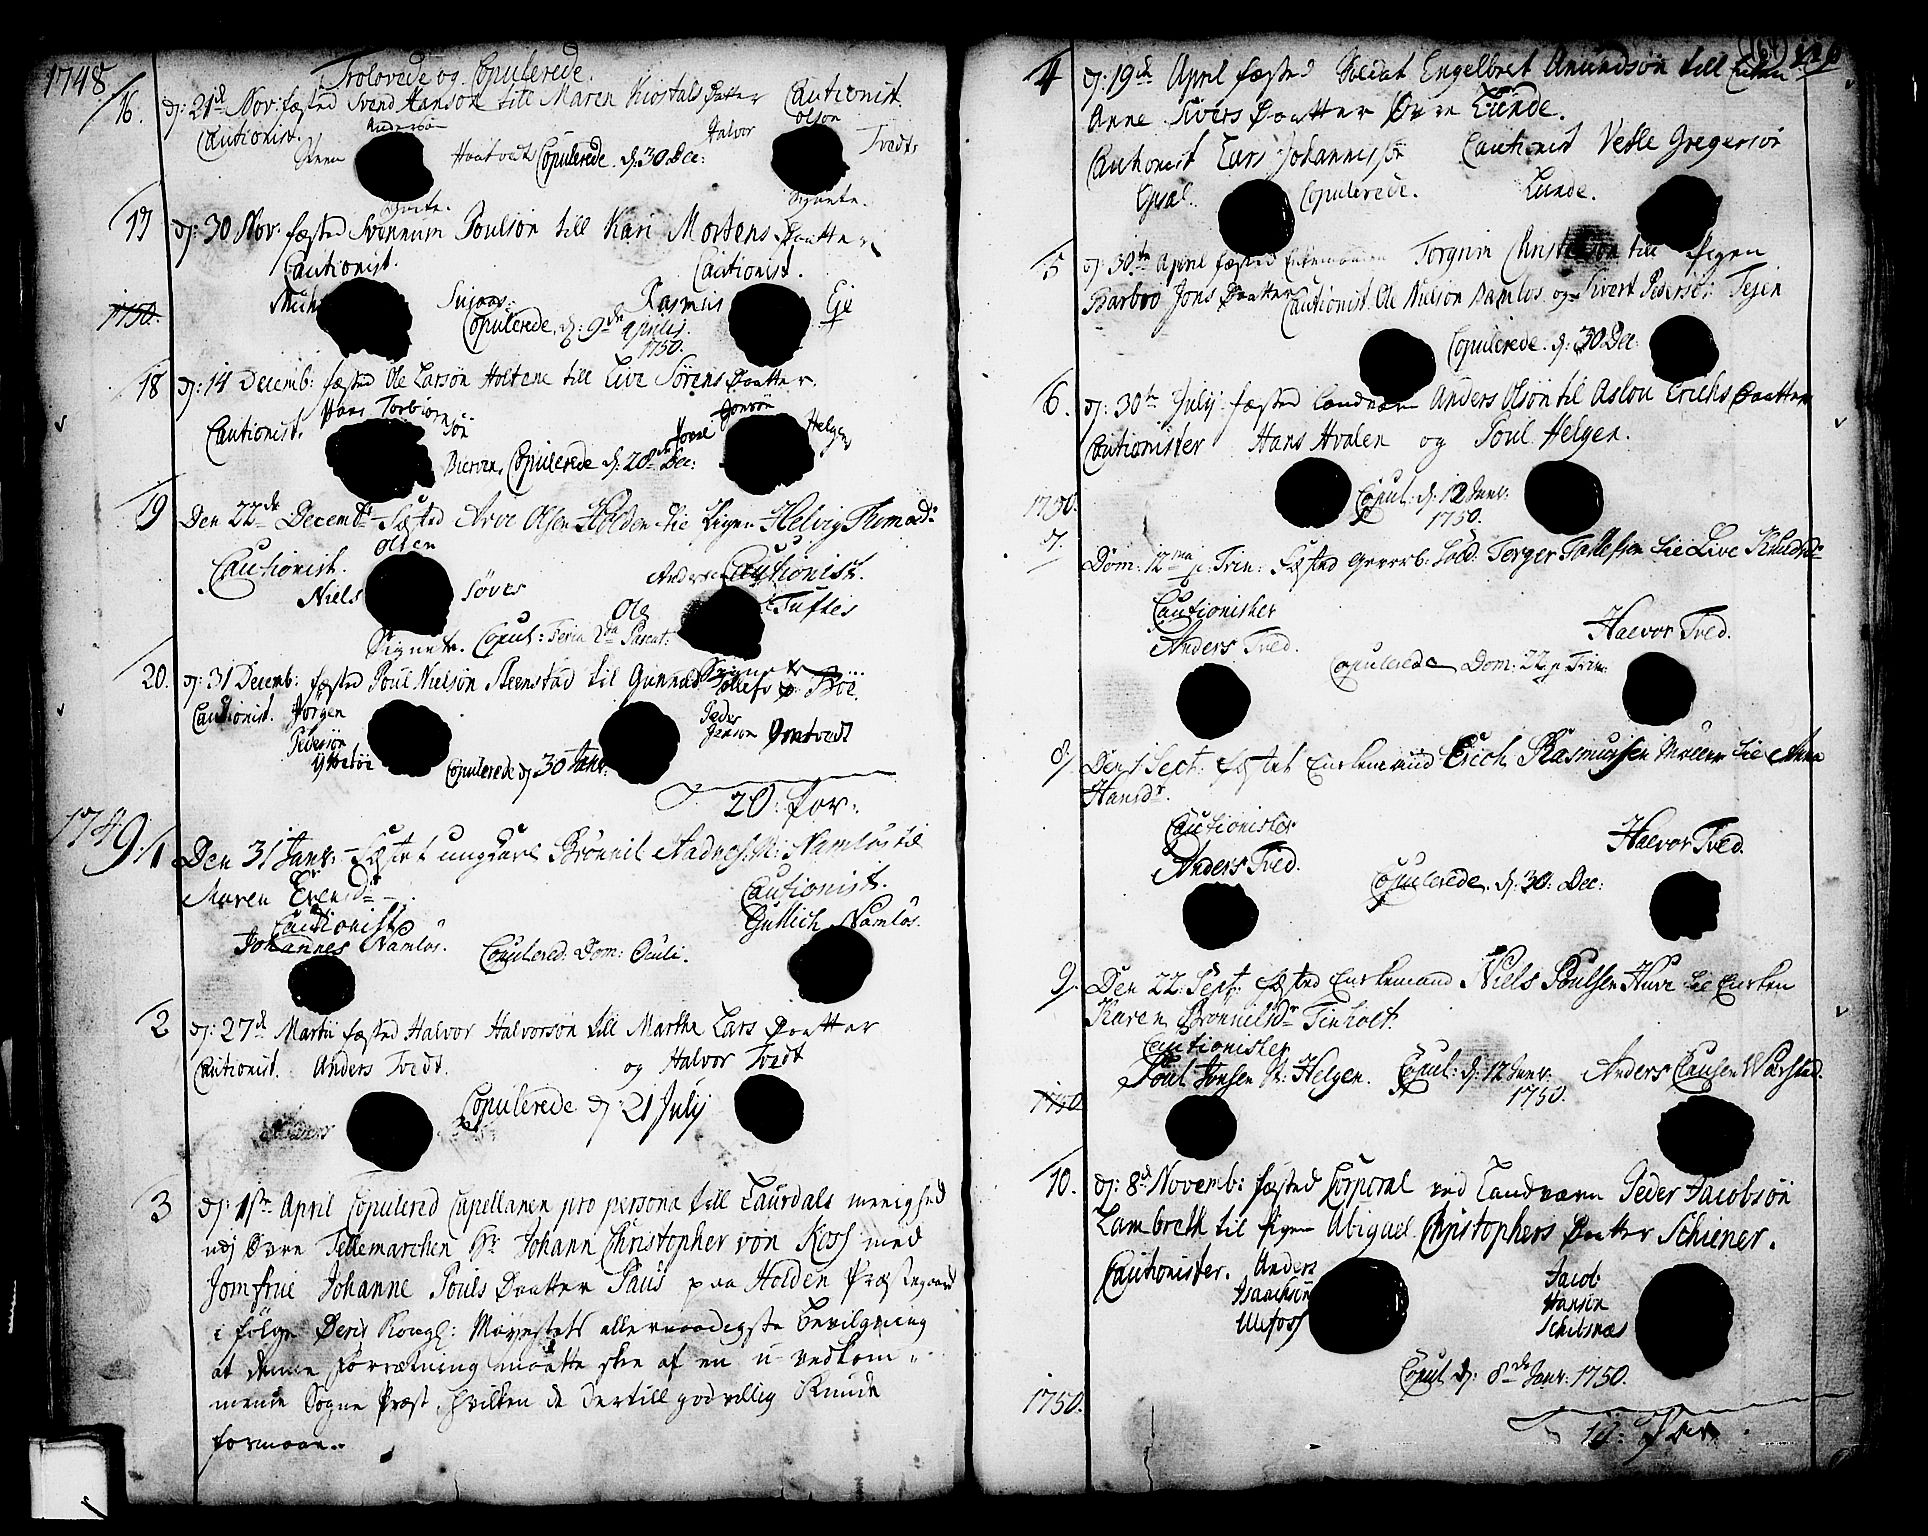 1748
Trolovede og Copulerede.
16. d: 21de Nov: fæsted Svend Hansøn till Maren Kiostals Daatter Cautionist.
Cautionist. Andersøn Halvor Olsøn Tvedt.
Copulerede d. 30 Dec:
17 d: 30 Nov: fæsted Svennum Poulsøn till Kari Mortens Daatter
Cautionist. Cautionist.
Rasmus Eie
1750. Copulerede d: 9de Aprilis.
1750.
18 d: 14 Decemb: fæsted Ole Larsøn Holtene till Live Sørens Daatter.
Cautionist. Hans Torbiørnsøn Jonsøn Helgen
Copulerede d. 28de Dec:
19 Den 22de Decembr fæsted Arve Olsen Holden til Pigen Helvig Thomasdr
Cautionist. Olsen Cautionist.
Niels Søves Anders Tuftes
Signete. Copul: Feria 2da Pascat: Ole
20. d: 31 Decemb: fæsted Poul Nielsøn Steenstad til Gunnild
Cautionist. Jørgen Peder
Pedersøn Jensøn
Copulerede d 30 Janr:
20: Par:
1749. 1 Den 31 Janr: fæstet ungkarl Brønnil Aadnes. N: Namløs til
Maren Evensdr
Cautionist Cautionist.
Johannes Namløs. Gullich Namløs.
Copulered: Dom: Oculi.
2 d: 27de Martii fæsted Halvor Halvorsøn till Marthe Lars Daatter
Cautionist. Anders Tvedt. og Halvor Tvedt
Copulerede d. 21 July
3 d: 1ste April Copulered Capellanen pro persona till Laurdals menighed
udj Øvre Tellemarchen Hr Johann Christopher von Koss med
Jomfrue Johanne Pouls Daatter Paus paa Holden Præstegaard
i følge Deris Kongl: Mayestets allernaadigste bevilgning
at denne forretning maatte skee af en u-vedkom-
mende Sogne Præst, hvilken de dertill godvillig kunde
formaae.
4 d: 19de April fæsted Soldat Engelbret Amundsøn till Enken
Anne Sivers Daatter Øvre Lunde.
Cautionist Lars Johannessøn Cautionist Vetle Gregersøn
Copulerede. Lunde.
5 d: 30te April fæsted Enkemanden Torgrim Christensøn till Pigen
Barbro Jons Daatter Cautionist Ole Nielsøn Namløs og Sivert Pedersøn Tejen
Copulerede. d: 30 Dec:
6. d: 30te July fæsted Landværn Anders Olsøn til Aslou Erichs Daatter
Cautionister Hans Hvalen og Poul Helgen.
1750. Copul: d. 12 Janr:
1750.
7. Dom: 12ma p: Trin: fæsted Sold: Torger Tollefsen til Live Knudsdr
Cautionister
Anders Tved. Halvor Tved.
Copulerede Dom: 22 p Trin:
8. Den 1 Sept: fæstet Enkemand Erich Rasmussen til Anna
Hansdr.
Cautionister
Anders Tved. Halvor Tved.
Copulerede. d. 30: Dec:
9. Den 22: Sept: fæsted Enkemand Niels Poulsen Huve til Enken
Karen Brønnilsdr Tinholt.
Cautionister
Poul Jonsen N: Helgen. Copul: d: 12 Janr: Anders Clausen Wærstad.
1750 1750.
10. d: 8de Novemb: fæsted Corporal ved Landværn Peder Jacobsøn
Lambreth til Pigen Abigael Christophers Daatter Schiener.
Cautionister. Anders Jacob
Isaachsøn Hansøn
Ulefoss Schilsnæs
Copul d: 8de Janr: 1750.
1750.
10: Par